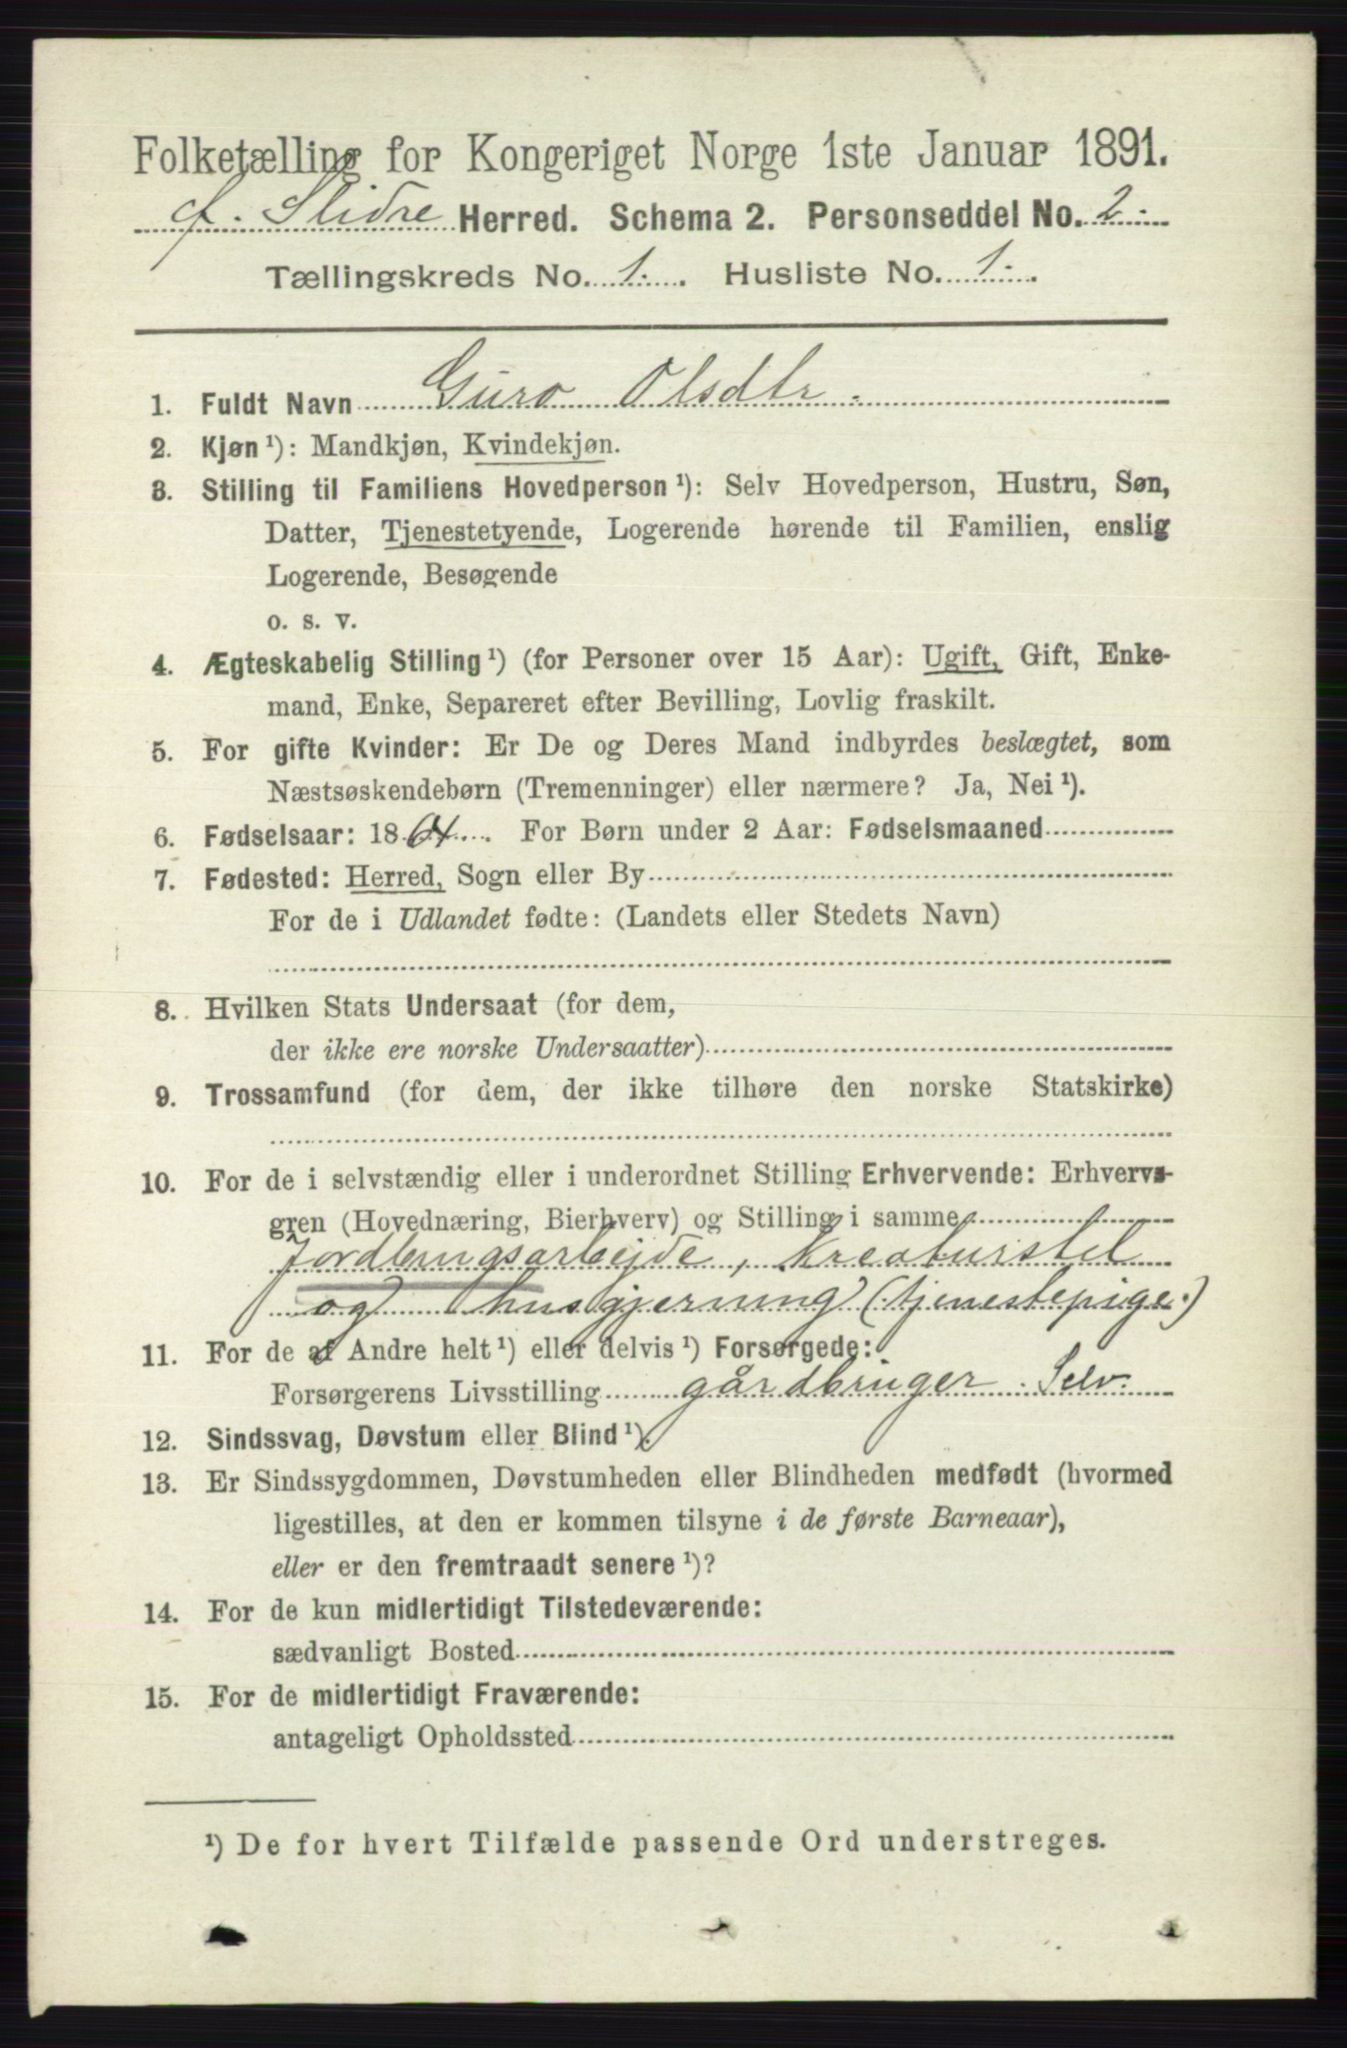 Folketælling for Kongeriget Norge 1ste Januar 1891.
Slidre Herred. Schema 2. Personseddel No. 2.
Tællingskreds No. 1. Husliste No. 1.
1. Fuldt Navn Guro Olsdtr.
2. Kjøn ¹): Mandkjøn, Kvindekjøn.
3. Stilling til Familiens Hovedperson ¹): Selv Hovedperson, Hustru, Søn,
Datter, Tjenestetyende, Logerende hørende til Familien, enslig
Logerende, Besøgende
o. s. v.
4. Ægteskabelig Stilling ¹) (for Personer over 15 Aar): Ugift, Gift, Enke-
mand, Enke, Separeret efter Bevilling, Lovlig fraskilt.
5. For gifte Kvinder: Er De og Deres Mand indbyrdes beslægtet, som
Næstsøskendebørn (Tremenninger) eller nærmere? Ja, Nei ¹).
6. Fødselsaar: 1864. For Børn under 2 Aar: Fødselsmaaned
7. Fødested: Herred, Sogn eller By
For de i Udlandet fødte: (Landets eller Stedets Navn)
8. Hvilken Stats Undersaat (for dem,
der ikke ere norske Undersaatter)
9. Trossamfund (for dem, der ikke tilhøre den norske Statskirke)
10. For de i selvstændig eller i underordnet Stilling Erhvervende: Erhvervs-
gren (Hovednæring, Bierhverv) og Stilling i samme
Jordbrugsarbejde, Kreaturstel
og husgjerning (tjenestepige.)
11. For de af Andre helt ¹) eller delvis ¹) Forsørgede:
Forsørgerens Livsstilling gårdbruger. Selv.
12. Sindssvag, Døvstum eller Blind ¹).
13. Er Sindssygdommen, Døvstumheden eller Blindheden medfødt (hvormed
ligestilles, at den er kommen tilsyne i de første Barneaar),
eller er den fremtraadt senere ¹)?
14. For de kun midlertidigt Tilstedeværende:
sædvanligt Bosted
15. For de midlertidigt Fraværende:
antageligt Opholdssted
¹) De for hvert Tilfælde passende Ord understreges.